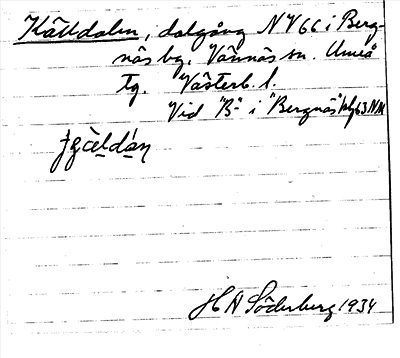 Källdalen, dalgång NV 66 i Berg-
näs by, Vännäs sn. Umeå
tg. Västerb. l.
Vid "B" i "Bergnäs" blg 63 NM
H A Söderberg 1934